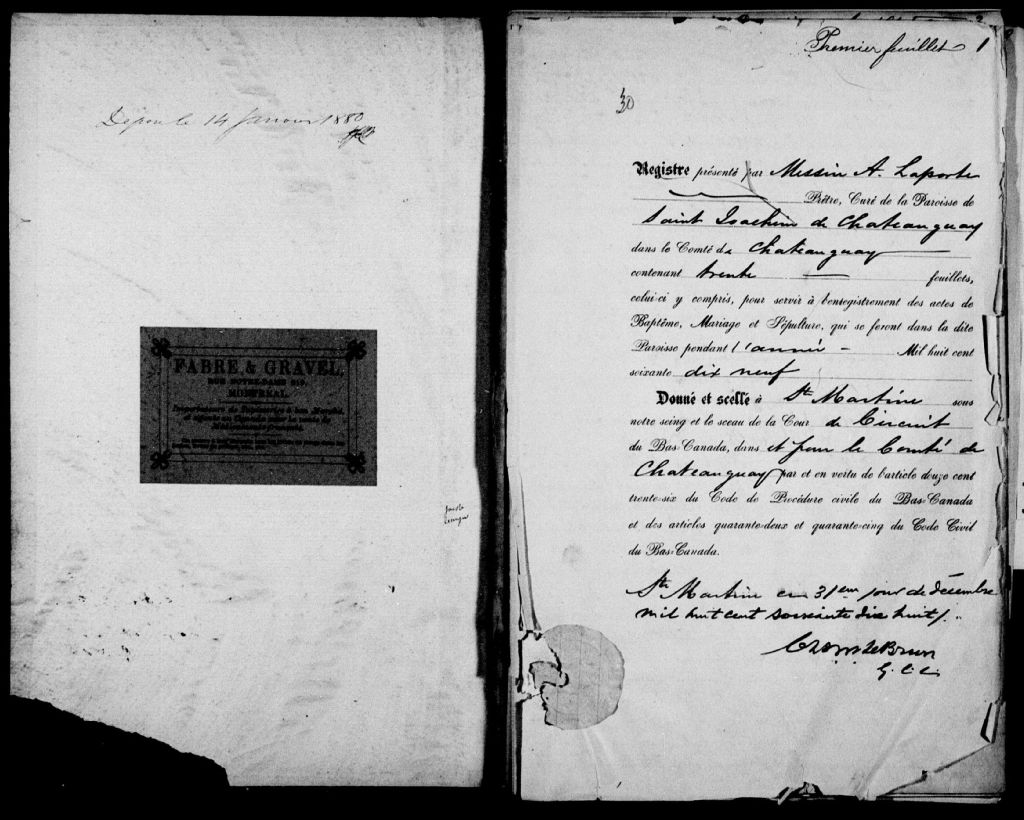 Déposé le 14 Janvier 1880
FABRE & GRAVEL,
RUE NOTRE-DAME 219,
MONTREAL.
Premier feuillet 1
30
Registre présenté par Messire A. Laporte
Prêtre, Curé de la Paroisse de
Saint Joachim de Chateauguay
dans le Comté de Chateauguay
contenant trente feuillets,
celui-ci y compris, pour servir à l'enregistrement des actes de
Baptême, Mariage et Sépulture, qui se feront dans la dite
Paroisse pendant l'année Mil huit cent
soixante dix neuf
Donné et scellé à Ste Martine sous
notre seing et le sceau de la Cour de Circuit
du Bas-Canada, dans et pour le Comté de
Chateauguay par et en vertu de l'article douze cent
trente-six du Code de Procédure civile du Bas-Canada
et des articles quarante-deux et quarante-cinq du Code Civil
du Bas-Canada.
Ste Martine ce 31em jour de décembre
mil huit cent soixante dix huit/.
LeBrun
G. C. C.